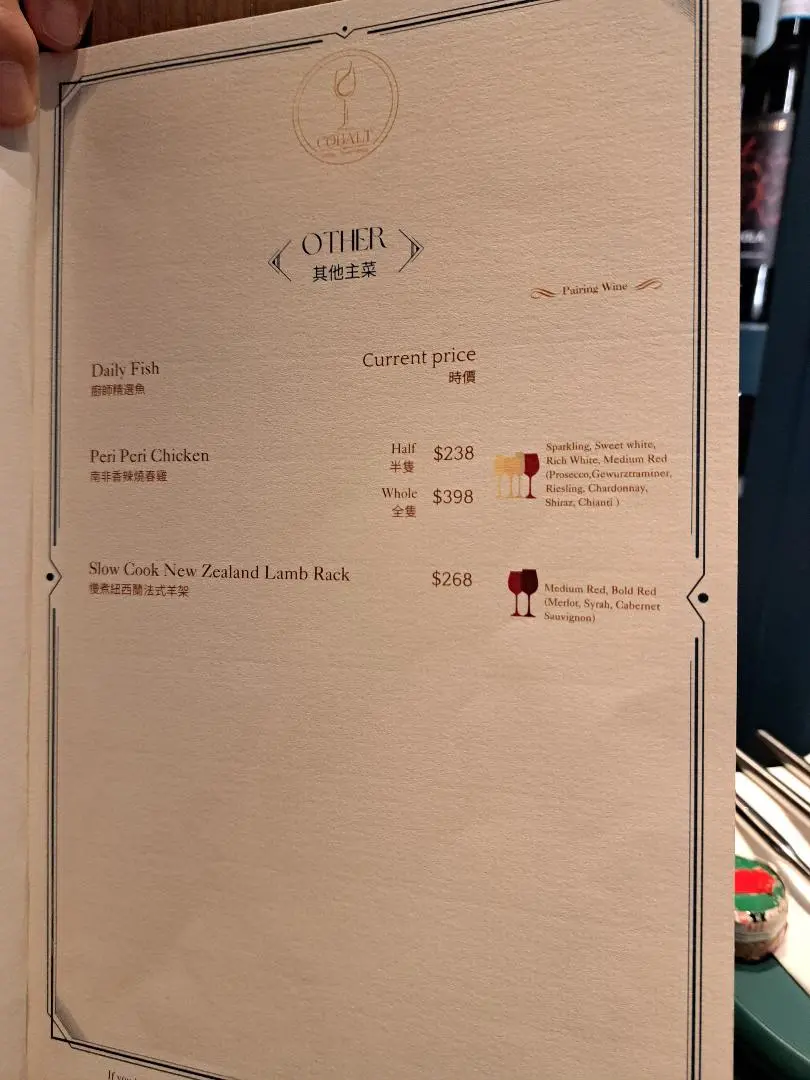 COBALT
OTHER
其他主菜
Pairing Wine
Daily Fish
廚師精選魚
Current price
時價
Peri Peri Chicken
南非香辣燒春雞
Half
半隻
$238
Whole
全隻
$398
Sparkling, Sweet white,
Rich White, Medium Red
(Prosecco,Gewurztraminer,
Riesling, Chardonnay,
Shiraz, Chianti )
Slow Cook New Zealand Lamb Rack
慢煮紐西蘭法式羊架
$268
Medium Red, Bold Red
(Merlot, Syrah, Cabernet
Sauvignon)
If you